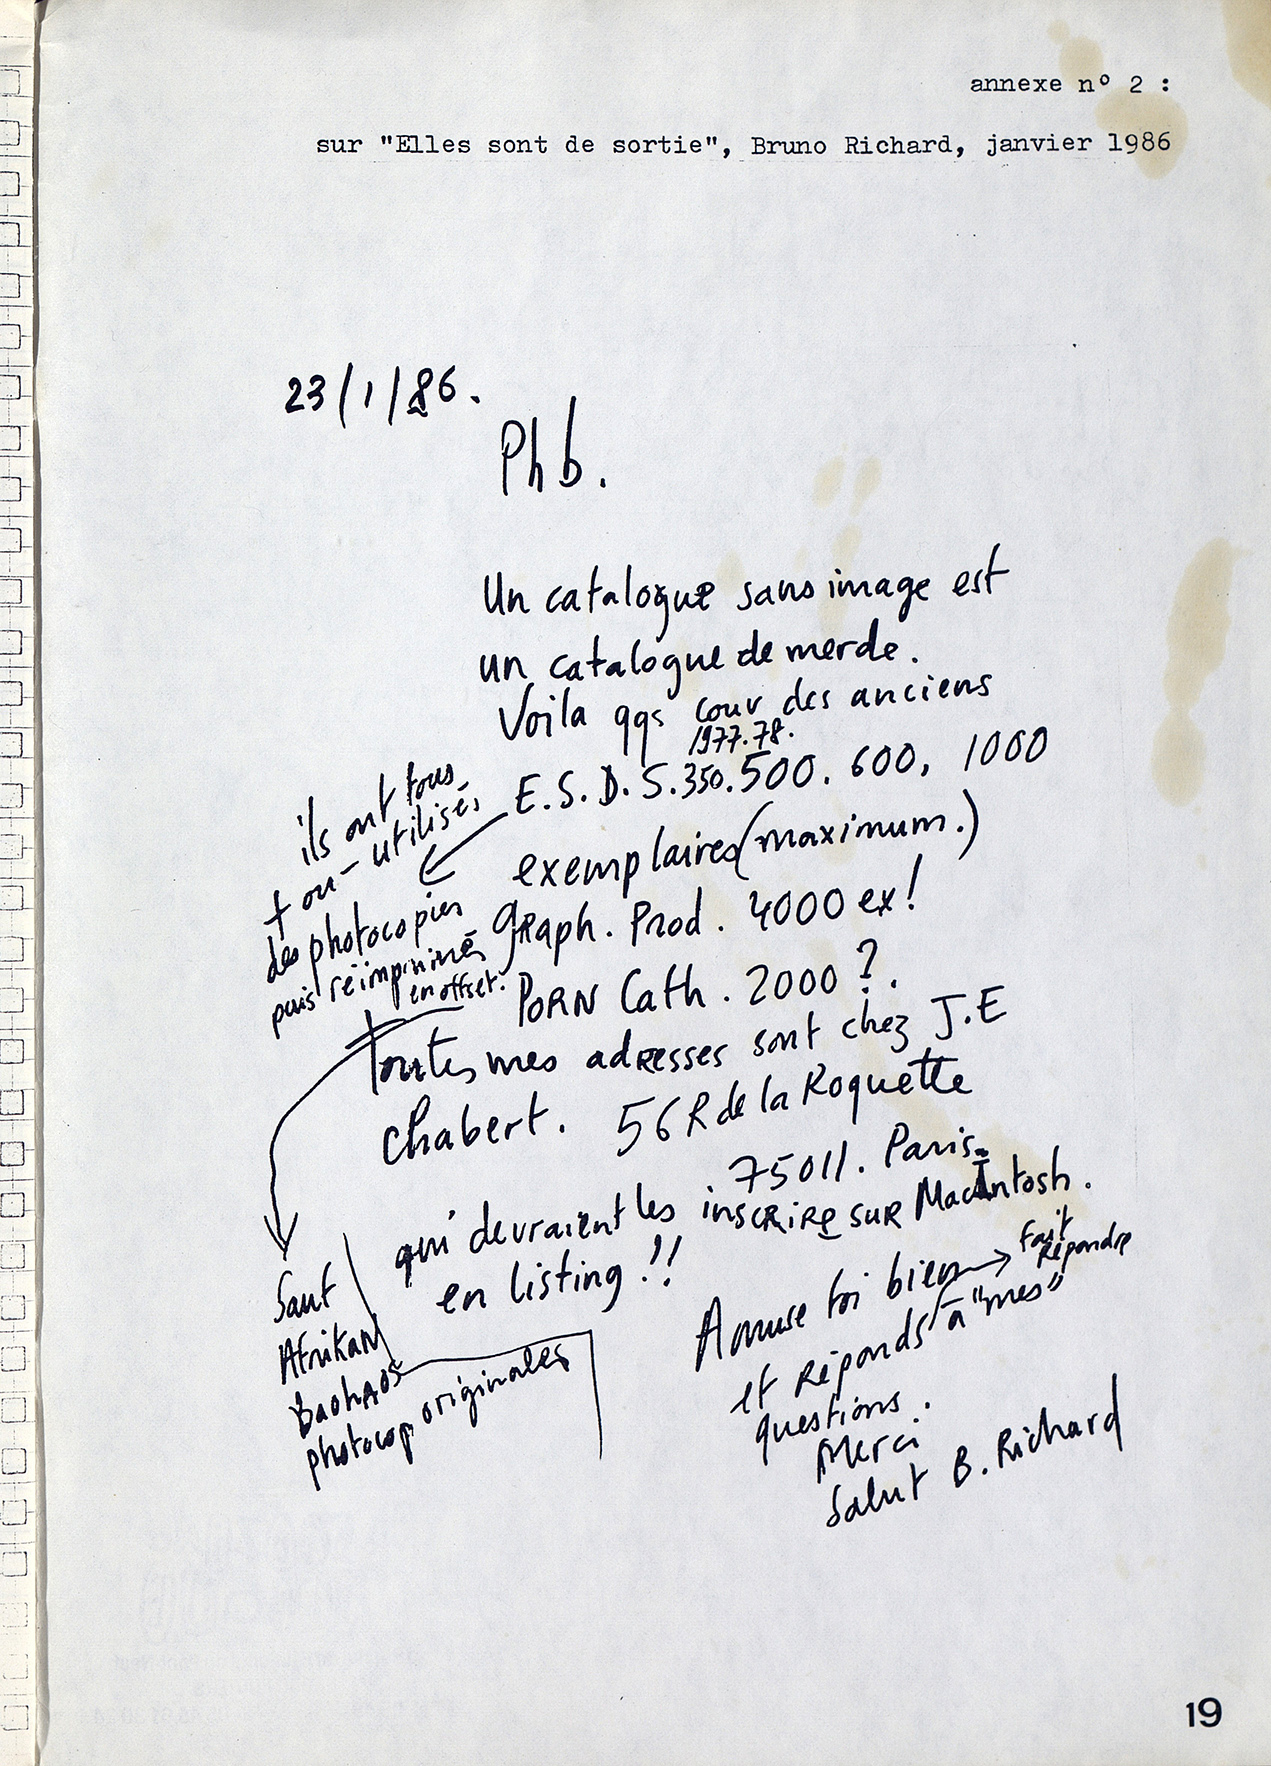 annexe n° 2 :
sur "Elles sont de sortie", Bruno Richard, janvier 1986
23/1/86.
Ph b.
Un catalogue sans image est
un catalogue de merde.
Voila qqs couv des anciens
1977.78.
E.S.D.S. 350. 500. 600, 1000
exemplaires (maximum.)
graph. Prod. 4000 ex!
PORN Cath. 2000 ?.
Toutes mes adresses sont chez J.E
Chabert. 56 R de la Roquette
75011. Paris.
qui devraient les inscrire sur MacIntosh.
en listing !!
ils ont tous
+ ou - utilisés
des photocopies
puis réimprimés
en offset.
Sauf
Afrikan
Baohaos
photocop originales
Amuse toi bien → fait
répondre
et réponds à "mes"
questions.
Merci
Salut B. Richard
19